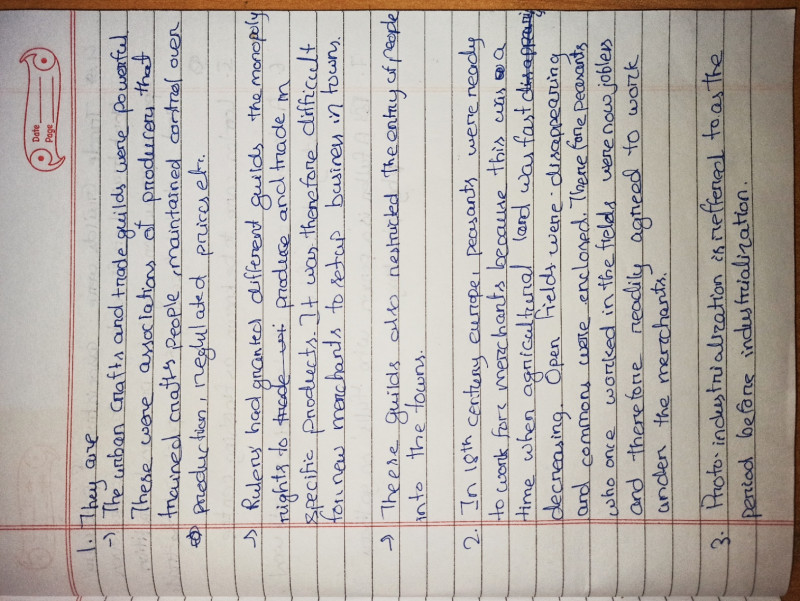 Date
Page
1. They are
→ The urban crafts and trade guilds were powerful.
These were associations of producers that
trained crafts people, maintained control over
production, regulated prices etc.
→ Rulers had granted different guilds the monopoly
rights to trade produce and trade in
specific products. It was therefore difficult
for new merchants to setup business in towns.
→ These guilds also restricted the entry of people
into the towns.
2. In 18th century europe, peasants were ready
to work for merchants because this was a
time when agricultural land was fast disappearing
decreasing. Open fields were disappearing
and commons were enclosed. Therefore peasants
who once worked in the fields were now jobless
and therefore readily agreed to work
under the merchants.
3. Proto-industrialization is reffered to as the
period before industrialization.